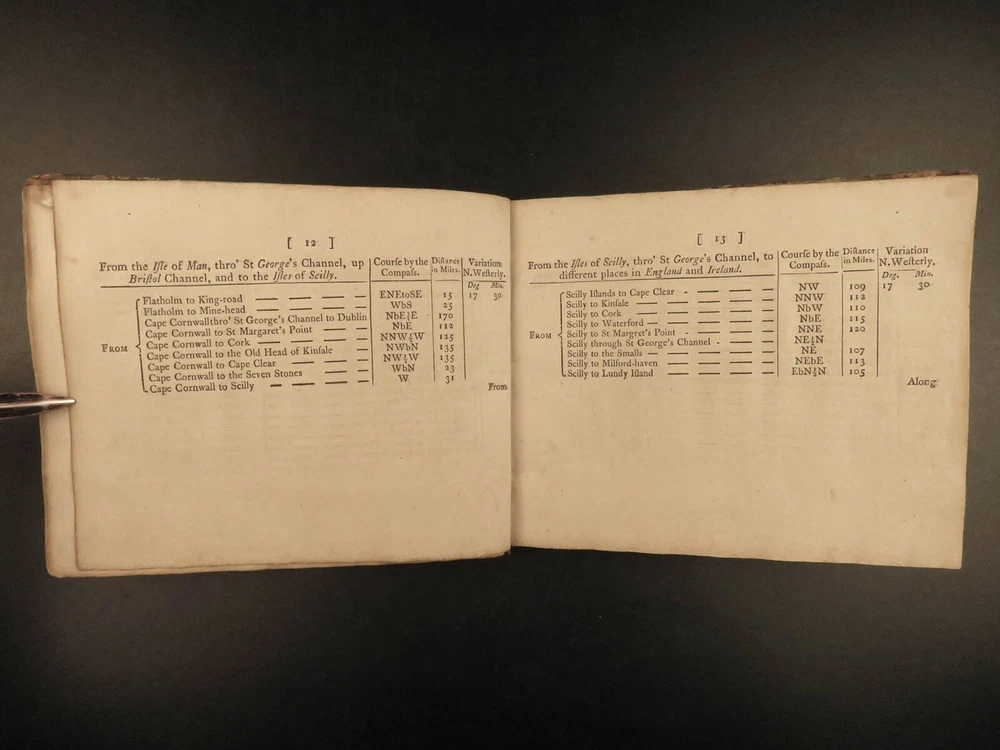 [ 12 ]
From the Iſle of Man, thro' St George's Channel, up Briſtol Channel, and to the Iſles of Scilly. | Courſe by the Compaſs. | Diſtance in Miles. | Variation N. Weſterly.
Deg Min.
FROM
Flatholm to King-road — — — — ENEtoSE 15 17 30
Flatholm to Mine-head — — — — WbS 25
Cape Cornwall thro' St George's Channel to Dublin NbE½E 170
Cape Cornwall to St Margaret's Point — — NbE 112
Cape Cornwall to Cork — — — — NNW½W 125
Cape Cornwall to the Old Head of Kinſale — NWbN 135
Cape Cornwall to Cape Clear — — — NW½W 135
Cape Cornwall to the Seven Stones — — WbN 23
Cape Cornwall to Scilly — — — — W 31
From
[ 13 ]
From the Iſles of Scilly, thro' St George's Channel, to different places in England and Ireland. | Courſe by the Compaſs. | Diſtance in Miles. | Variation N. Weſterly.
Deg. Min.
FROM
Scilly Iſlands to Cape Clear - — — — NW 109 17 30
Scilly to Kinſale — — — — — NNW 112
Scilly to Cork — — — — — NbW 110
Scilly to Waterford — — — — — NbE 115
Scilly to St Margret's Point - — — — NNE 120
Scilly through St George's Channel - — — NE½N
Scilly to the Smalls — — — — — NE 107
Scilly to Milford-haven — — — — NEbE 113
Scilly to Lundy Iſland — — — — EbN½N 105
Along